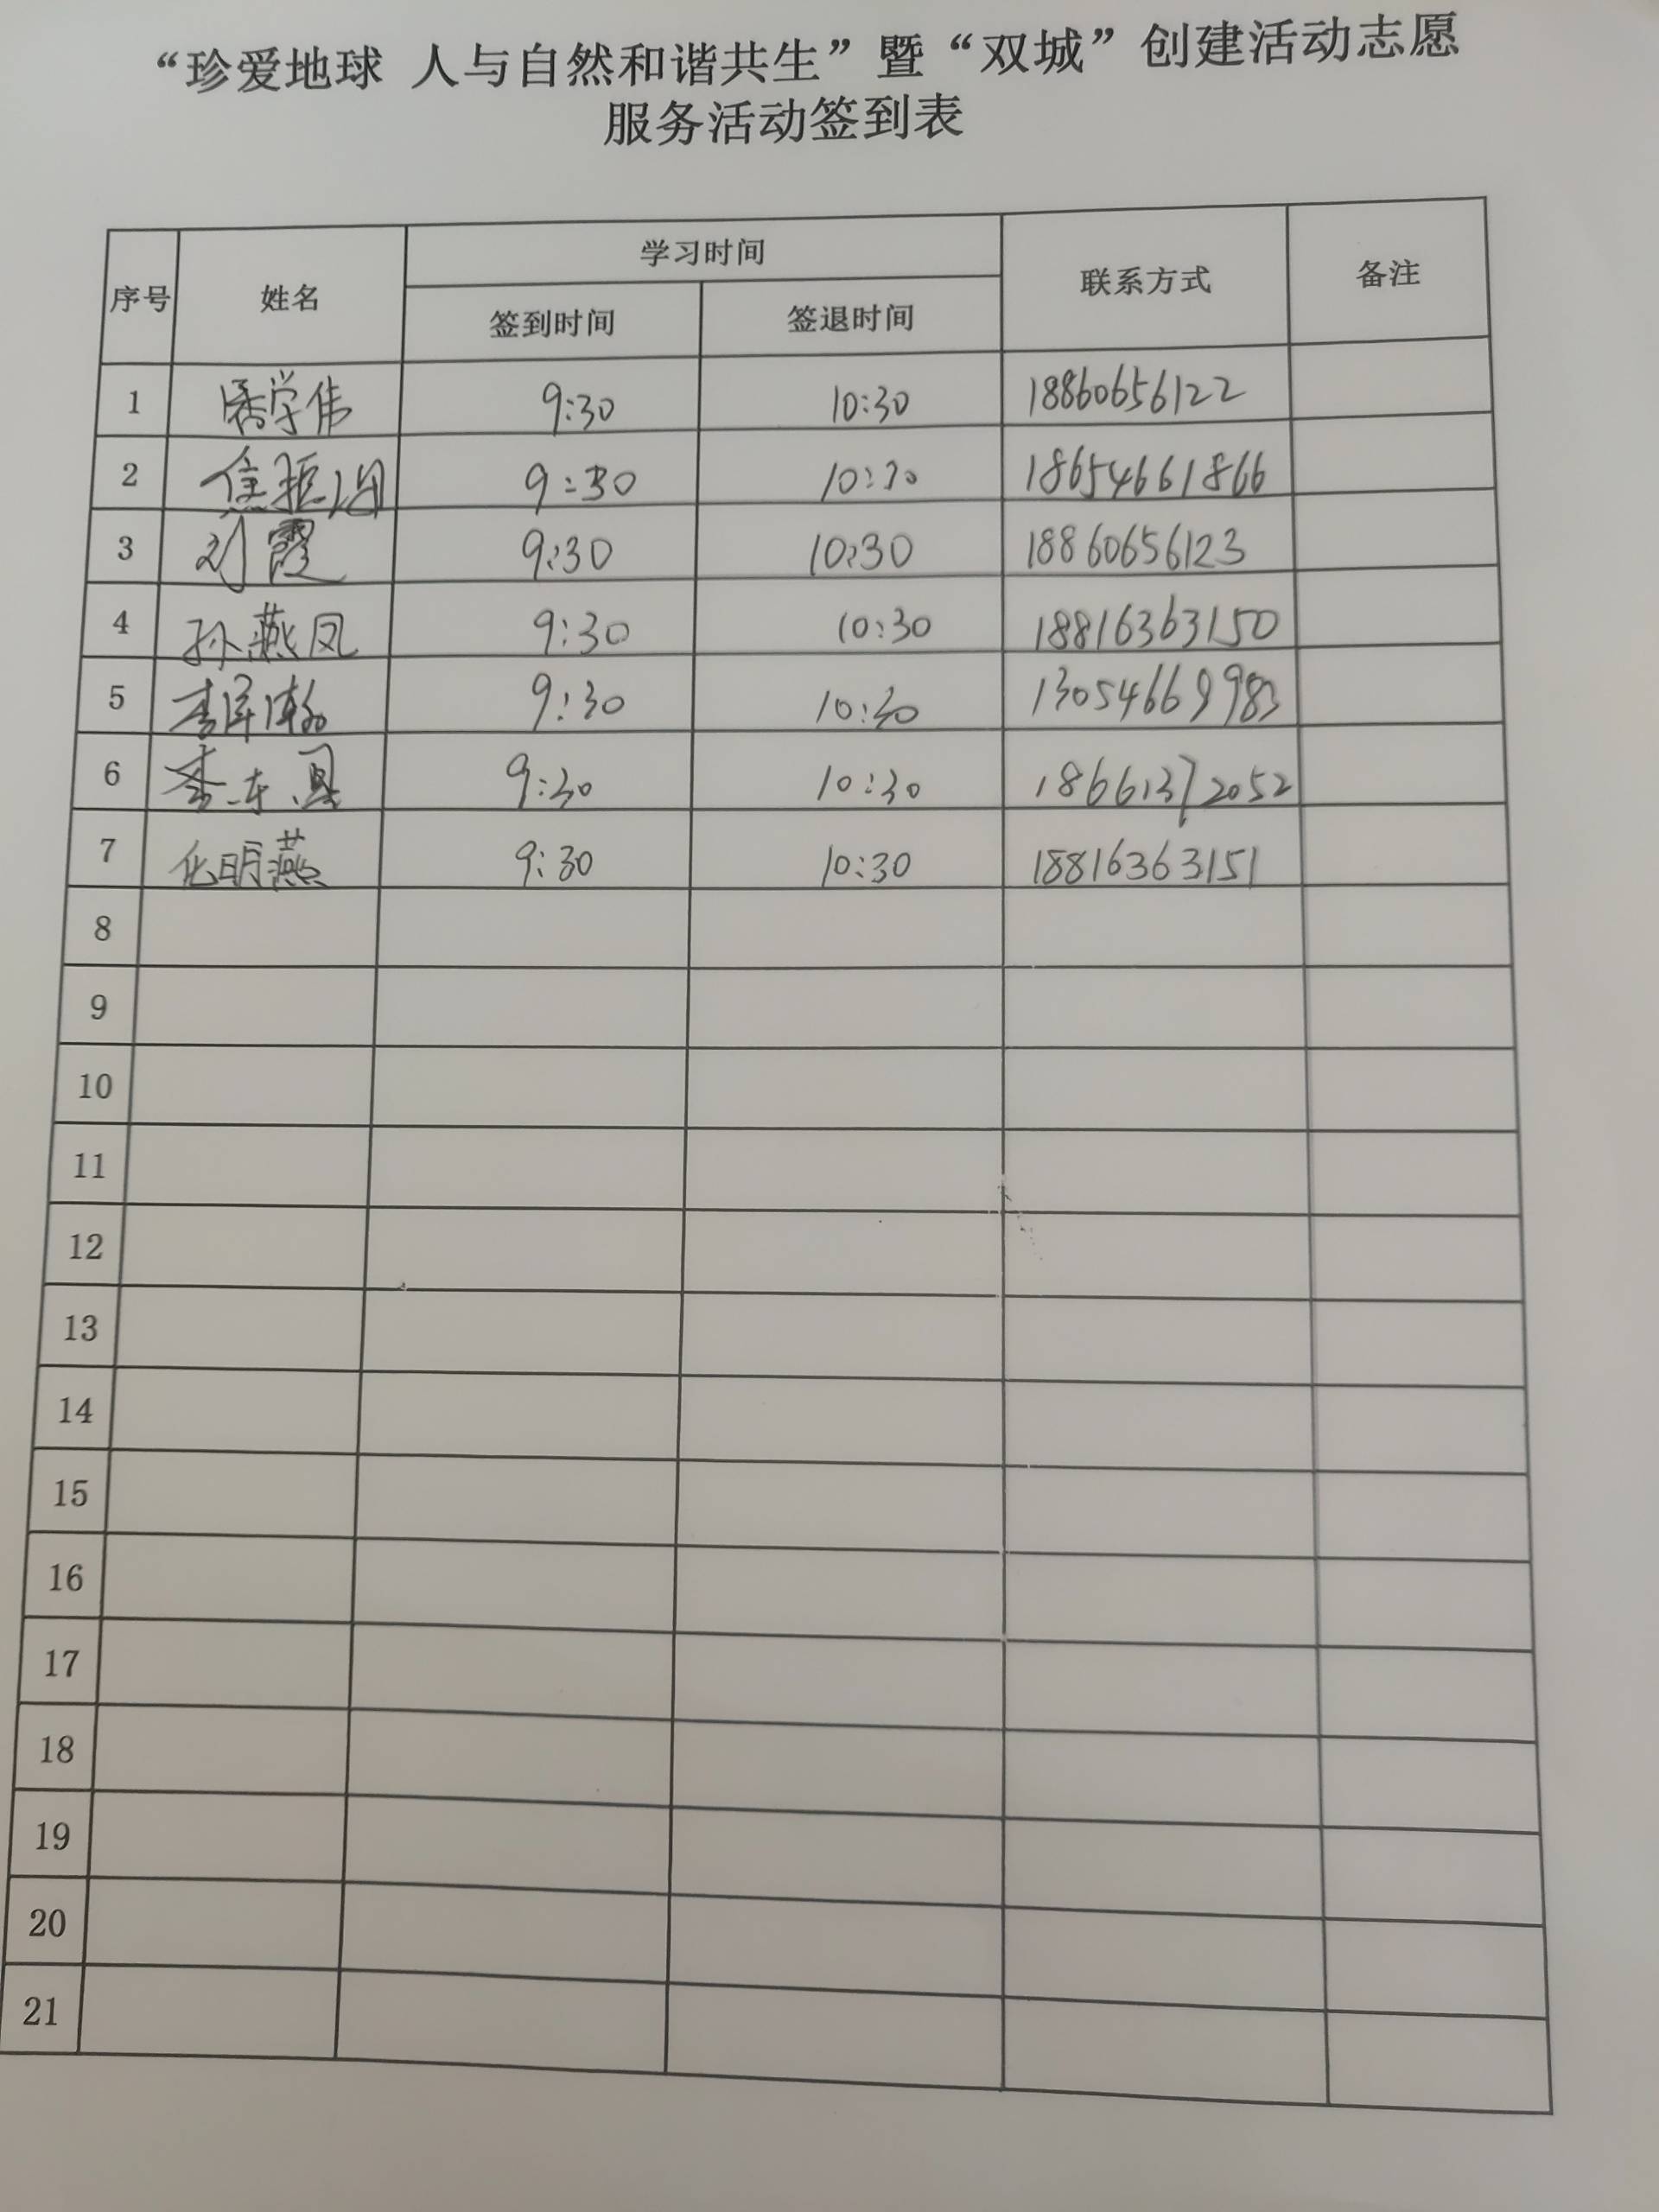 “珍爱地球 人与自然和谐共生”暨“双城”创建活动志愿
服务活动签到表
序号 姓名 学习时间 联系方式 备注
签到时间 签退时间
1 潘学伟 9:30 10:30 18860656122
2 焦 9:30 10:30 18654661866
3 刘霞 9:30 10:30 18860656123
4 孙燕凤 9:30 10:30 18816363150
5 李 9:30 10:30 13054669983
6 李东 9:30 10:30 18661372052
7 化明燕 9:30 10:30 18816363151
8
9
10
11
12
13
14
15
16
17
18
19
20
21